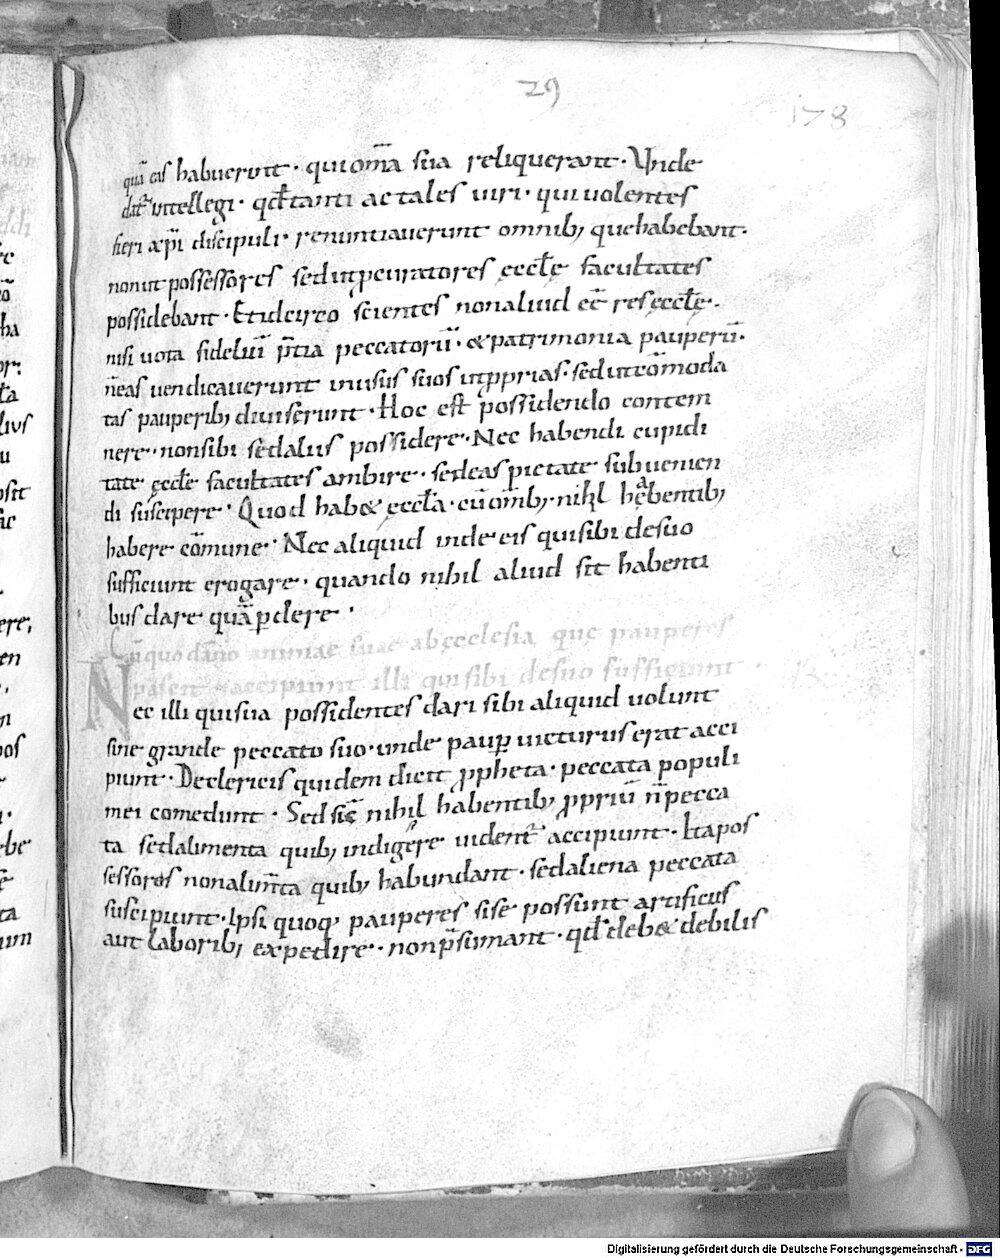 29
178
quā eas habuerunt · qui om̄a sua reliquerant · Unde
datr̄ intellegi · qđ tanti ac tales uiri · qui uolentes
fieri xp̄i discipuli · renuntiauerunt omnib; que habebant ·
non ut possessores sed ut pcuratores ęcclę facultates
possidebant · Et idcirco scientes non aliud eē res ęcclę ·
nisi uota fideliū p̄tia peccatorū · & patrimonia pauperū ·
n̄ eas uendicauerunt in usus suos ut pprias · sed ut cōmoda
tas pauperib; diuiserunt · Hoc est possidendo contem
nere · non sibi sed aliis possidere · Nec habendi cupidi
tate ęcclę facultates ambire · sed eas pietate subuenien
di suscipere · Quod hab& ęccla · cū omīb; nihil habentib;
habere cōmune · Nec aliquid inde eis qui sibi de suo
sufficiunt erogare · quando nihil aliud sit habenti
bus dare quā pdere ·
Cū quo dāno animae suae ab ęcclesia quę pauperes
pascit accipiunt illi qui sibi de suo sufficiunt ·
Nec illi qui sua possidentes dari sibi aliquid uolunt
sine grande peccato suo · unde paup uicturus erat acci
piunt · De clericis quidem dicit ppheta · peccata populi
mei comedunt · Sed sic nihil habentib; ppriū n̄ pecca
ta sed alimenta quib; indigere uident̄ accipiunt · Ita pos
sessores non alim̄ta quib; habundant · sed aliena peccata
suscipiunt · Ipsi quoq; pauperes si se possunt artificiis
aut laborib; expedire · non p̄sumant · qđ deb& debilis
Digitalisierung gefördert durch die Deutsche Forschungsgemeinschaft · DFG